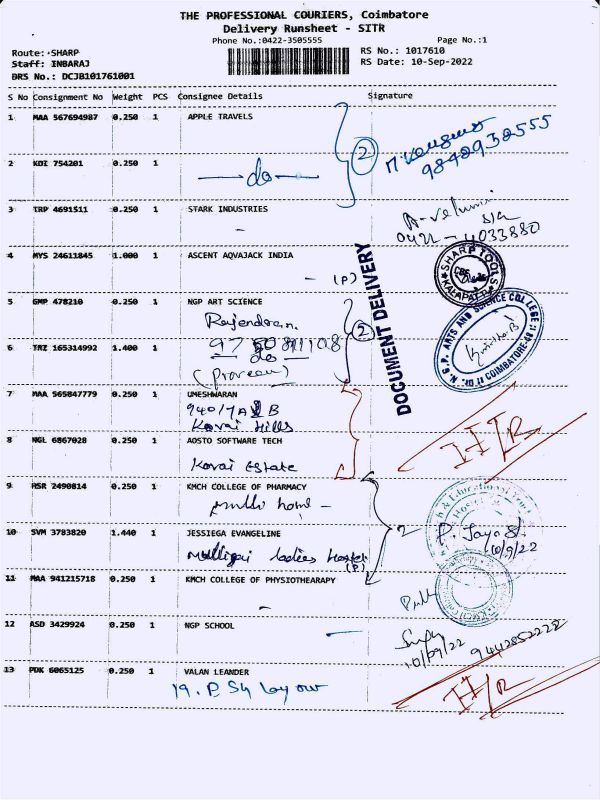 THE PROFESSIONAL COURIERS, Coimbatore
Delivery Runsheet - SITR
Phone No.:0422-3505555
Page No.:1
Route: SHARP
RS No.: 1017610
Staff: INBARAJ
RS Date: 10-Sep-2022
DRS No.: DCJB101761001
S No Consignment No Weight PCS Consignee Details Signature
1 MAA 567694987 0.250 1 APPLE TRAVELS
2
9840930555
2 KDI 754201 0.250 1
do
3 TRP 4691511 0.250 1 STARK INDUSTRIES
A-velumani
0422-4033880
4 MYS 24611845 1.000 1 ASCENT AQVAJACK INDIA
(P)
SHARP TOOLS
KALAPATTI
DOCUMENT DELIVERY
5 GMP 478210 0.250 1 NGP ART SCIENCE
Rajendran.
2
N.G.P. ARTS AND SCIENCE COLLEGE
COIMBATORE-48
6 TRZ 165314992 1.400 1
9750811108
do
(Praveen)
7 MAA 565847779 0.250 1 UMESHWARAN
940/7A2B
Kovai Hills
H/R
8 NGL 6867028 0.250 1 AOSTO SOFTWARE TECH
Kovai Estate
9 RSR 2490814 0.250 1 KMCH COLLEGE OF PHARMACY
mullu home -
2
P. Jaya
10/9/22
10 SVM 3783820 1.440 1 JESSIEGA EVANGELINE
Mulligai ladies Hostel
(P)
11 MAA 941215718 0.250 1 KMCH COLLEGE OF PHYSIOTHEARAPY
12 ASD 3429924 0.250 1 NGP SCHOOL
10/09/22
9442852222
13 PDK 6065125 0.250 1 VALAN LEANDER
19. P Sy layout
H/R